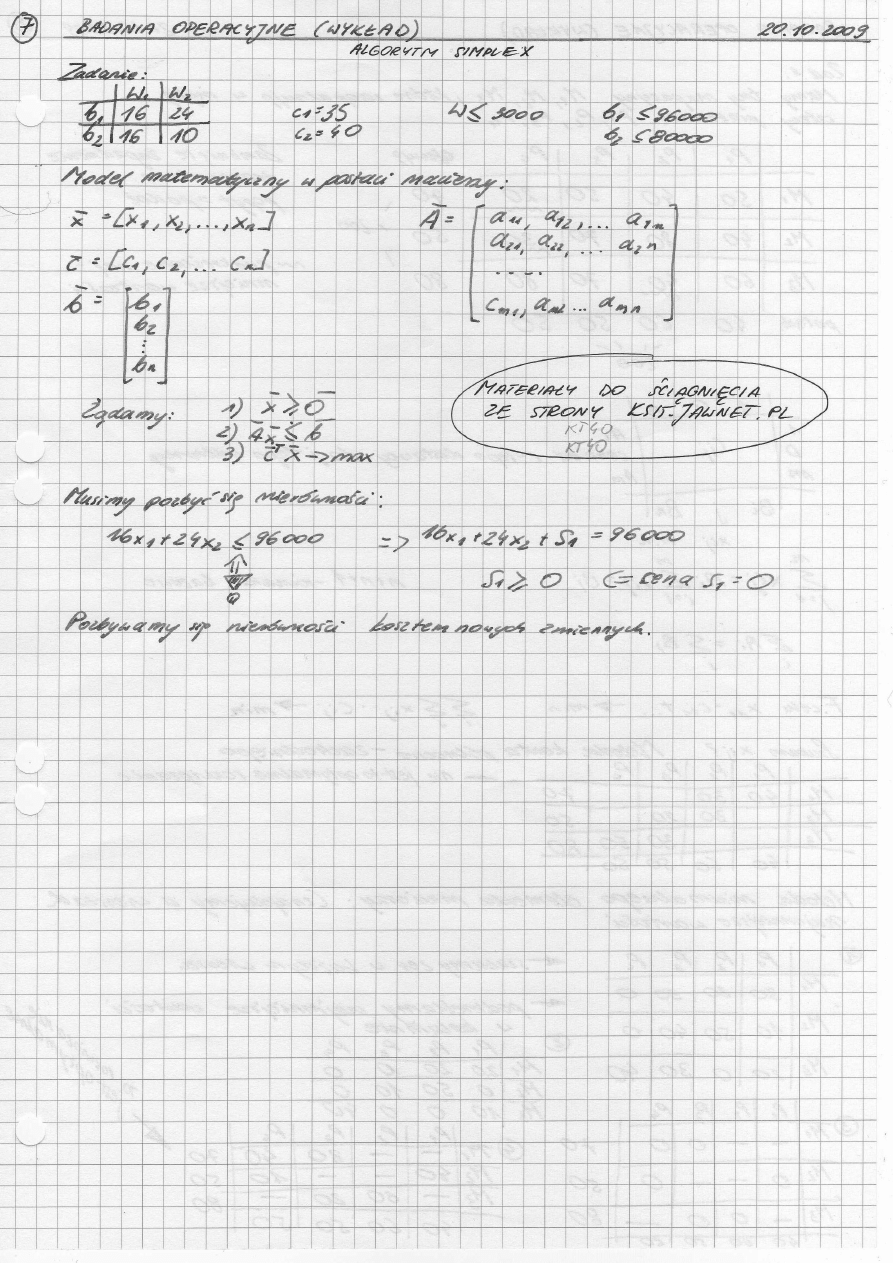 7 BADANIA OPERACYJNE (WYKŁAD) 20.10.2009
ALGORYTM SIMPLEX
Zadanie:
W₁ W₂
b₁ 16 24 c₁=35 W ≤ 3000 b₁ ≤ 96000
b₂ 16 10 c₂=40 b₂ ≤ 80000
Model matematyczny w postaci macierzy:
x̄ = [x₁, x₂, ..., xₙ] Ā = [a₁₁, a₁₂, ... a₁ₙ
a₂₁, a₂₂, ... a₂ₙ
c̄ = [c₁, c₂, ... cₙ] .....
b̄ = [b₁ cₘ₁, aₘ₂ ... aₘₙ]
b₂
⋮
bₙ]
MATERIAŁY DO ŚCIĄGNIĘCIA
ZE STRONY KSIS.JAWNET.PL
KT40
KT40
Żądamy: 1) x̄ ≥ 0̄
2) Āx̄ ≤ b̄
3) c̄ᵀx̄ -> max
Musimy pozbyć się nierówności:
16x₁+24x₂ ≤ 96000 => 16x₁+24x₂+S₁ = 96000
S₁ ≥ 0 <= cena S₁ = 0
Pozbywamy się nierówności kosztem nowych zmiennych.